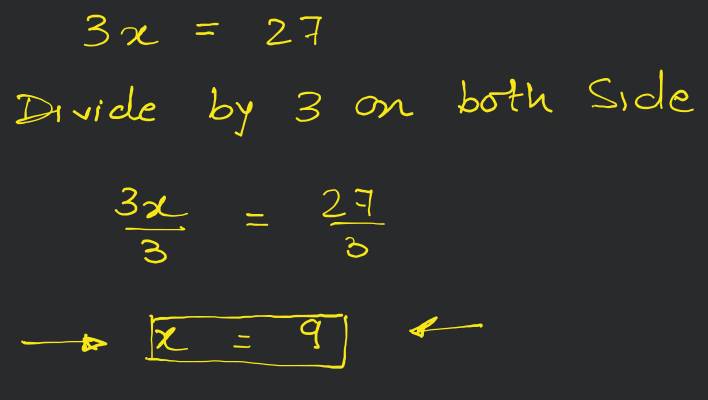 3x = 27
Divide by 3 on both Side
3x/3 = 27/3
→ x = 9 ←